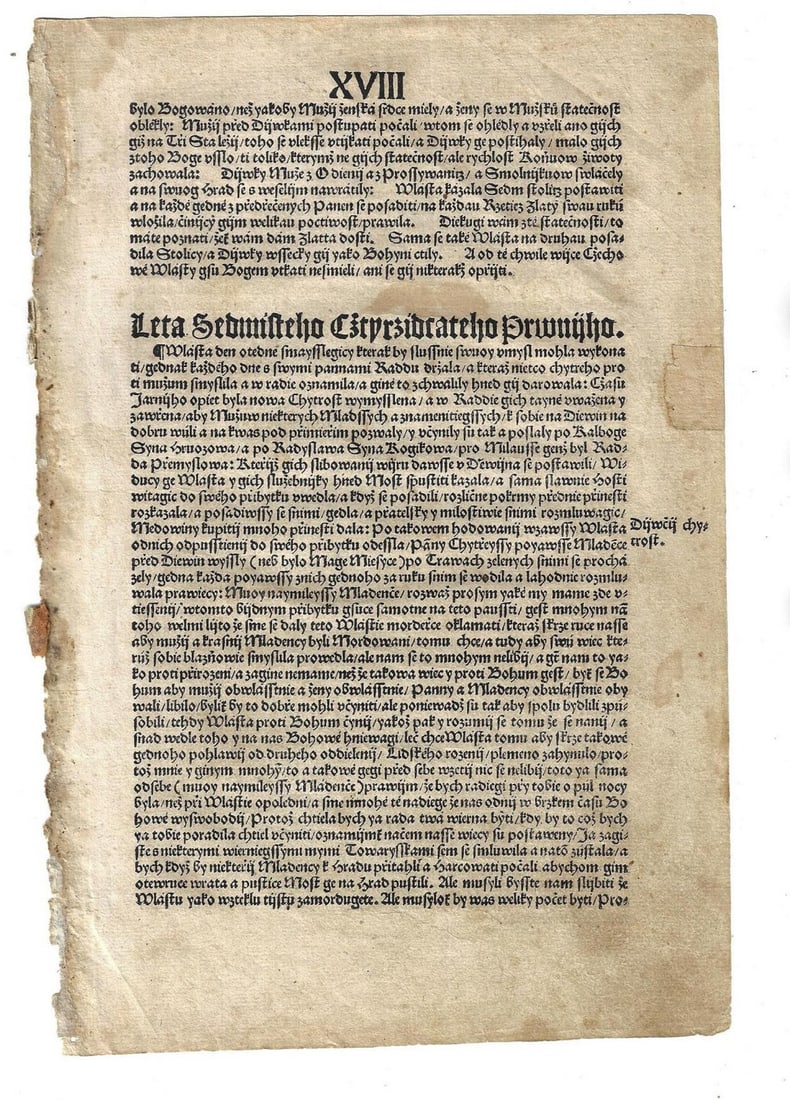 XVIII
bylo Bogowano/než yakoby Mužij ženska srdce miely/a ženy se w Mužskú statečnost
oblekly: Mužij před Dijwkami postupati počali/wtom se ohledly a vzřeli ano gijch
giž na Tři Sta ležij/toho se vleksse vtijkati počali/a Dijwky ge postihaly/malo gijch
ztoho Boge vsslo/ti toliko/kterymž ne gijch statečnost/ale rychlost Koňuow žiwoty
zachowala: Dijwky Muže z Odienij a z Prossywanitz/a Smolnijkuow swláčely
a na swuog Hrad se s weselijm nawratily: Wlasta kazala Sedm stolitz postawiti
a na každe gedné z předřečených Panen se posaditi/na každau Rzetiez Zlatý swau rukú
wložila/činijcý gijm welikau poctiwost/prawila. Diekugi wám zté statečnosti/to
máte poznati/žeť wám dám Zlatta dosti. Sama se také Wlasta na druhau posa-
dila Stolicy/a Dijwky wssecky gij yako Bohyni ctily. A od té chwile wijce Cžecho
wé Wlasty gsu Bogem vtkati nesmieli/ani se gij nikterakž opřijti.
Leta Sedmisteho Cžtyrzidcateho Prwnijho.
¶Wlasta den otedne smaysslegicy kterak by slussnie swuoy vmysl mohla wykona
ti/gednak každého dne s swymi pannami Raddu držala/a kteráž nietco chytreho pro
ti mužum smyslila a w radie oznamila/a giné to zchwalily hned gij darowala: Cžasu
Jarnijho opiet byla nowa Chytrost wymysslena/a w Raddie gich tayné vwažena y
zawřena/aby Mužuw niekterych Mladssych a znamenitiegssych/k sobie na Diewin na
dobru wuli a na kwas pod přimieřim pozwaly/y včynily sú tak a poslaly po Kalboge
Syna Hruozowa/a po Radyslawa Syna Kogikowa/pro Milausse genž byl Rad-
da Přemyslowa: Kteřijž gich slibowanij wijru dawsse v Dewijna se postawili/Wi-
ducy ge Wlasta y gich služebnijky hned Most spustiti kazala/a sama slawnie Hosti
witagic do swého přibytku vwedla/a když se posadili/rozličné pokrmy předně přinesti
rozkazala/a posadiwssy se snimi/gedla/a přatelsky y milostiwie snimi rozmluwagic/
Medowiny kupitij mnoho přinesti dala: Po takowem hodowanij wzawssy Wlasta
odnich odpusstienij do swého přibytku odessla/Panny Chytřeyssy poyawsse Mladence
před Diewin wyssly (neb bylo Mage Miesyce) po Trawach zelenych snimi se prochá
zely/gedna každa poyawssy znich gednoho za ruku snim se wodila a lahodnie rozmlu-
wala prawiecy: Muoy naymileyssy Mladenče/rozwaž prosym yaké my mame zde v-
tiessenij/wtomto bijdnym přibytku gsuce samotne na teto paussti/gest mnohym nam
toho welmi lijto že sme se daly teto Wlastie morderce oklamati/kteráž skrze ruce nasse
aby mužij a krasnij Mladency byli Mordowani/tomu chce/a tudy aby swu wiec kte-
ruž sobie blazňowie smyslila prowedla/ale nam se to mnohym nelibij/a gt nam to ya-
ko proti přirozeni/a zagine nemame/než že takowa wiec y proti Bohum gest/byť se Bo
hum aby mužij obwlasstnie a ženy obwlasstnie/Panny a Mladency obwlasstnie oby
wali/libilo/byliť by to dobře mohli včyniti/ale poniewadž su tak aby spolu bydlili zpu-
sobili/tehdy Wlasta proti Bohum čynij/yakož pak y rozumij se tomu že se nanij/a
snad wedle toho y na nás Bohowé hniewagi/leč chce Wlasta tomu aby skrze takowé
gednoho pohlawij od druheho oddielenij/Lidského rozenij/plemeno zahynulo/pro-
tož mnie y ginym mnohym/to a takowé gegi před sebe wzetij nic se nelibij/toto ya sama
odsebe (muoy naymileyssy Mladenče) prawijm/že bych radiegi při tobie o pul nocy
byla/než při Wlastie opoledni/a sme mnohé té nadiege že nas odnij w brzkem času Bo
howé wyswobodij/Protož chtiela bych ya rada twá wierna byti/kdy by to což bych
ya tobie poradila chtiel včyniti/oznamijmt načem nasse wiecy su postaweny/Ja zagi-
sté s niekterymi wierniegssymi mymi Towaryskami sem se smluwila a natom zustala/a
bych když by niekteřij Mladency k Hradu přitahli a Harcowati počali abychom gim
otewruce wrata a pustice Most ge na Hrad pustili. Ale musyli bysste nam slijbiti že
Wlastu yako wzteklu tijstu zamordugete. Ale musyloť by was weliky počet byti/Pro-
Dijwčij chy-
trost.